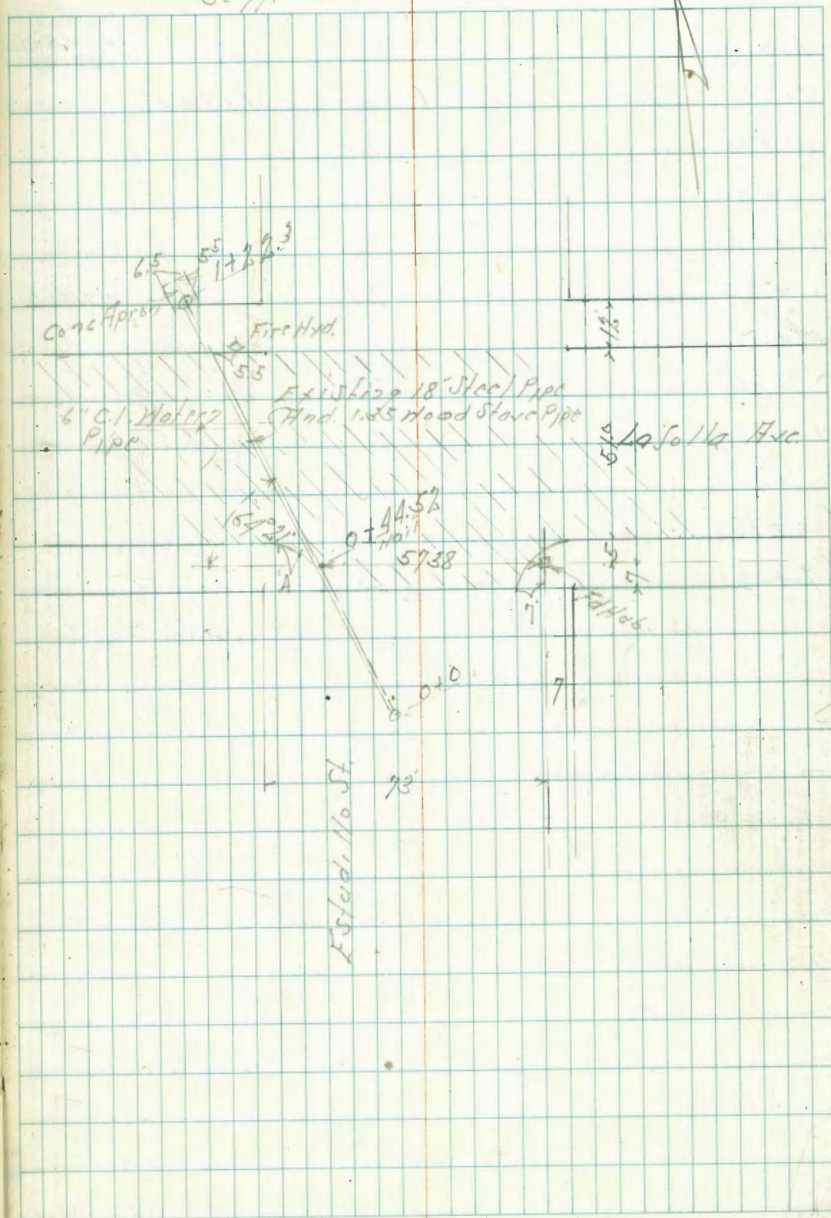 6.5 5.5 1+22.3
Conc Apron
Fire Hyd.
5.5
Existing 18" Steel Pipe
And 1.35 Wood Stave Pipe
6" C.I. Water
Pipe
12
La Jolla Ave
0+44.52
57.38
A
7
7
Fd Hub
0+0
7
73
Estudi No St.